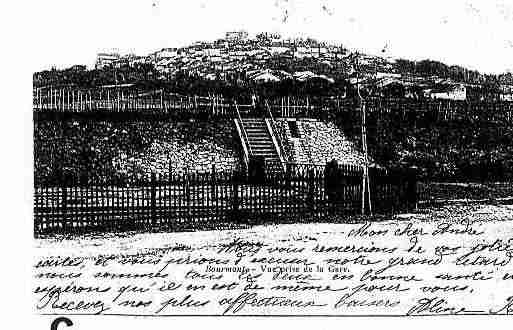 Mon cher André
Nous vous remercions de vos jolies
carte, et vous prions d'excuser notre grand retard
Bourmont - Vue prise de la Gare.
nous sommes tous les deux en bonne santé et
espérons qu'il en est de même pour vous.
Recevez nos plus affectueux baisers Aline